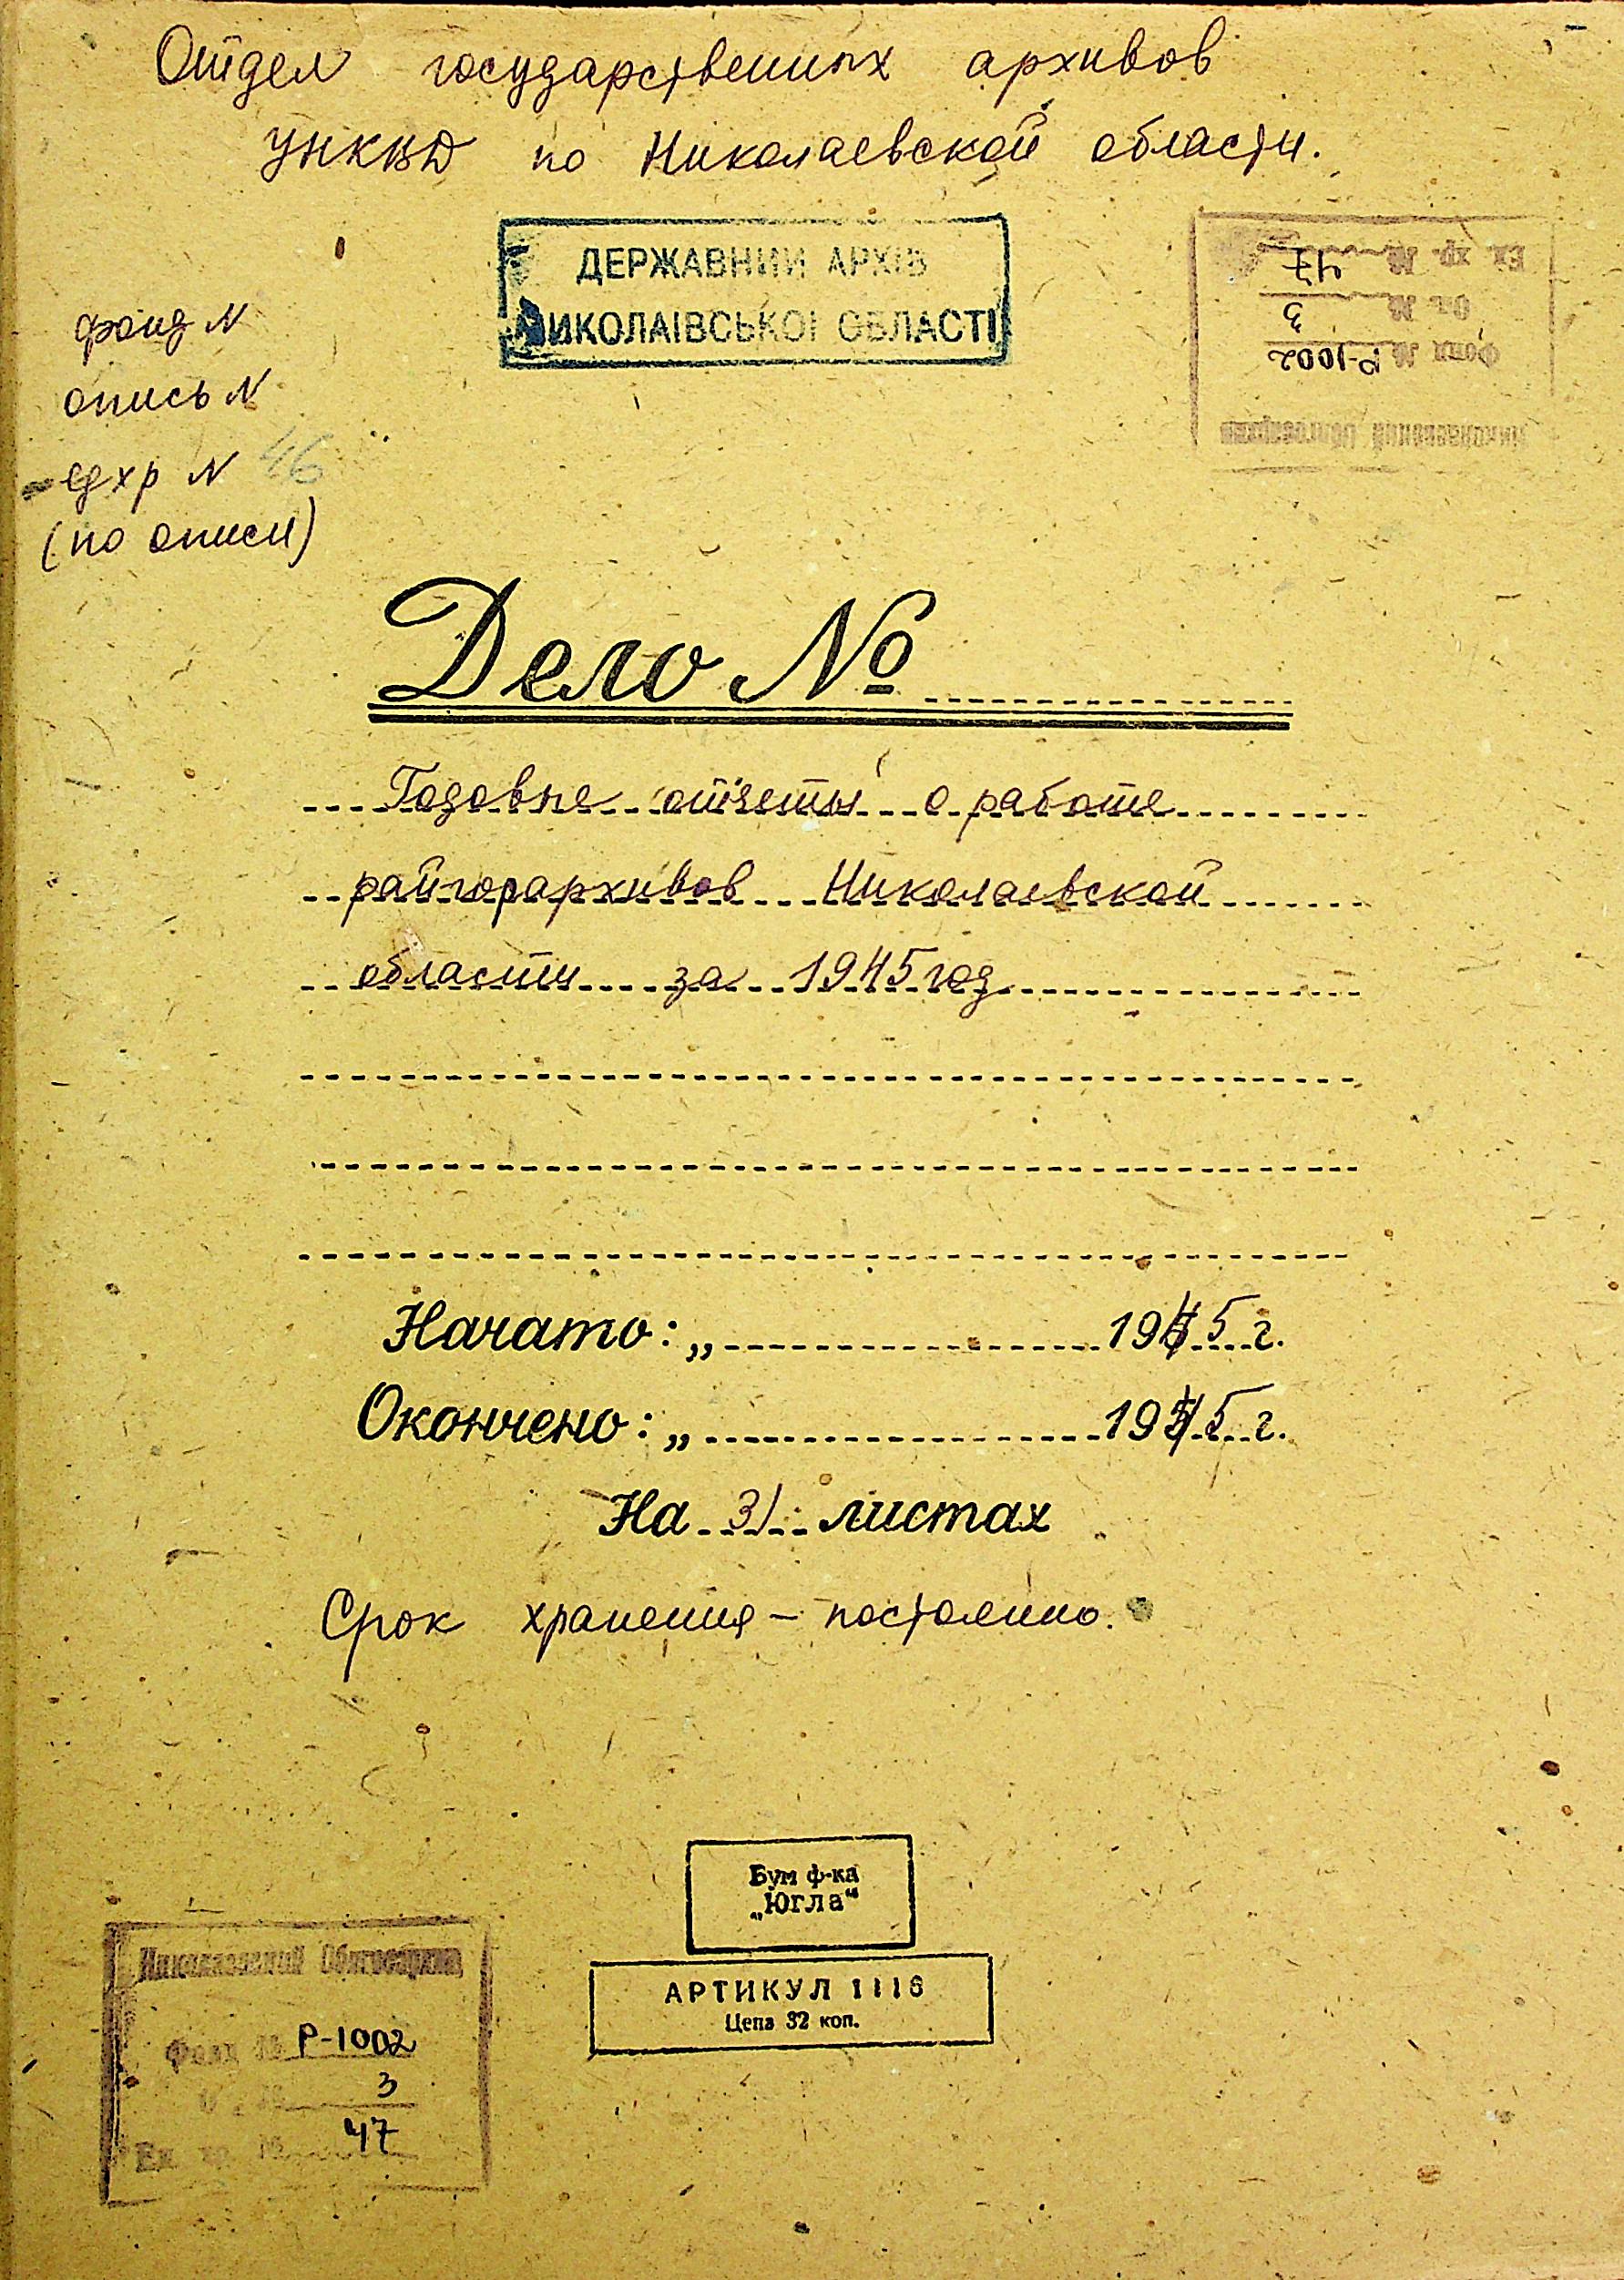 Отдел государственных архивов
УНКВД по Николаевской области.
ДЕРЖАВНИЙ АРХІВ
МИКОЛАЇВСЬКОЇ ОБЛАСТІ
Николаевский Облгосархив
Фонд № Р-1002
Оп. № 3
Ед. хр. № 47
фонд N
опись N
ед хр N 46
(по описи)
Дело №
Годовые отчеты о работе
райгорархивов Николаевской
области за 1945 год
Начато: „ 1945 г.
Окончено: „ 1945 г.
На 31 листах
Срок хранения – постоянно.
Бум ф-ка
„Югла“
АРТИКУЛ 1116
Цена 32 коп.
Николаевский Облгосархив
Фонд № Р-1002
Оп. № 3
Ед. хр. № 47